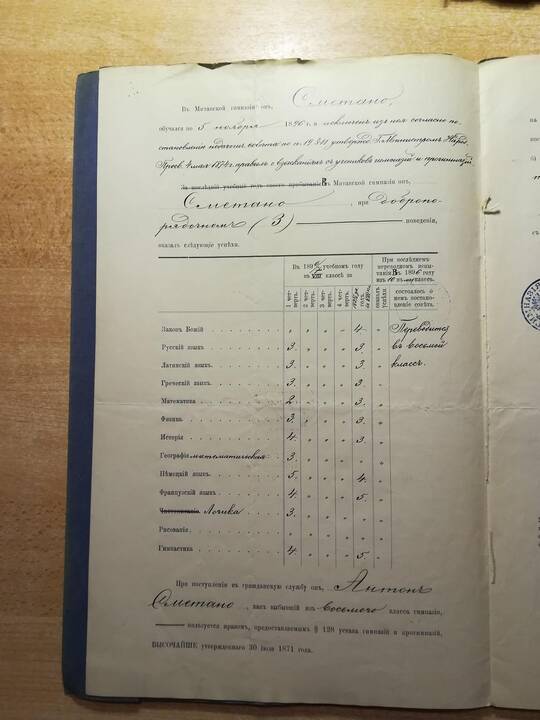 Въ Митавской гимназіи онъ, Сметано,
обучался по 5 ноября 1896 г. и исключенъ изъ нея согласно по-
становленія педагогич. совѣта по ст. 19 утвержд. Г. Министромъ Народ.
Просв. 4 мая 1874 г. правилъ о взысканіяхъ съ учениковъ гимназій и прогимназій
За послѣдній учебный годъ своего пребыванія Въ Митавской гимназіи онъ,
Сметано, при добропо-
рядочномъ (3) поведеніи,
оказалъ слѣдующіе успѣхи:
Въ 1896/7 учебномъ году въ VIII классѣ за
При послѣднемъ переводномъ испытаніи въ 1896 году
1 четверть.
2 четверть.
3 четверть.
4 четверть.
годъ
оказалъ успѣхи
состоялось о немъ постановленіе совѣта.
Законъ Божій „ „ „ „ 4 „ Переводится
Русскій языкъ 3. „ „ „ 3. „ въ восьмой
Латинскій языкъ 3. „ „ „ 3. „ классъ.
Греческій языкъ 3. „ „ „ 3. „
Математика 2. „ „ „ 3. „
Физика 3. „ „ „ 3. „
Исторія 4. „ „ „ 3. „
Географія математическая 3. „ „ „ „ „
Нѣмецкій языкъ 5. „ „ „ 4. „
Французскій языкъ 4. „ „ „ 5. „
Чистописаніе Логика 3. „ „ „ „ „
Рисованіе „ „ „ „ „ „
Гимнастика 4. „ „ „ 5. „
При поступленіи въ гражданскую службу онъ, Антонъ
Сметано, какъ выбывшій изъ восьмого класса гимназіи,
пользуется правомъ, предоставляемымъ § 128 устава гимназій и прогимназій,
ВЫСОЧАЙШЕ утвержденнаго 30 іюля 1871 года.